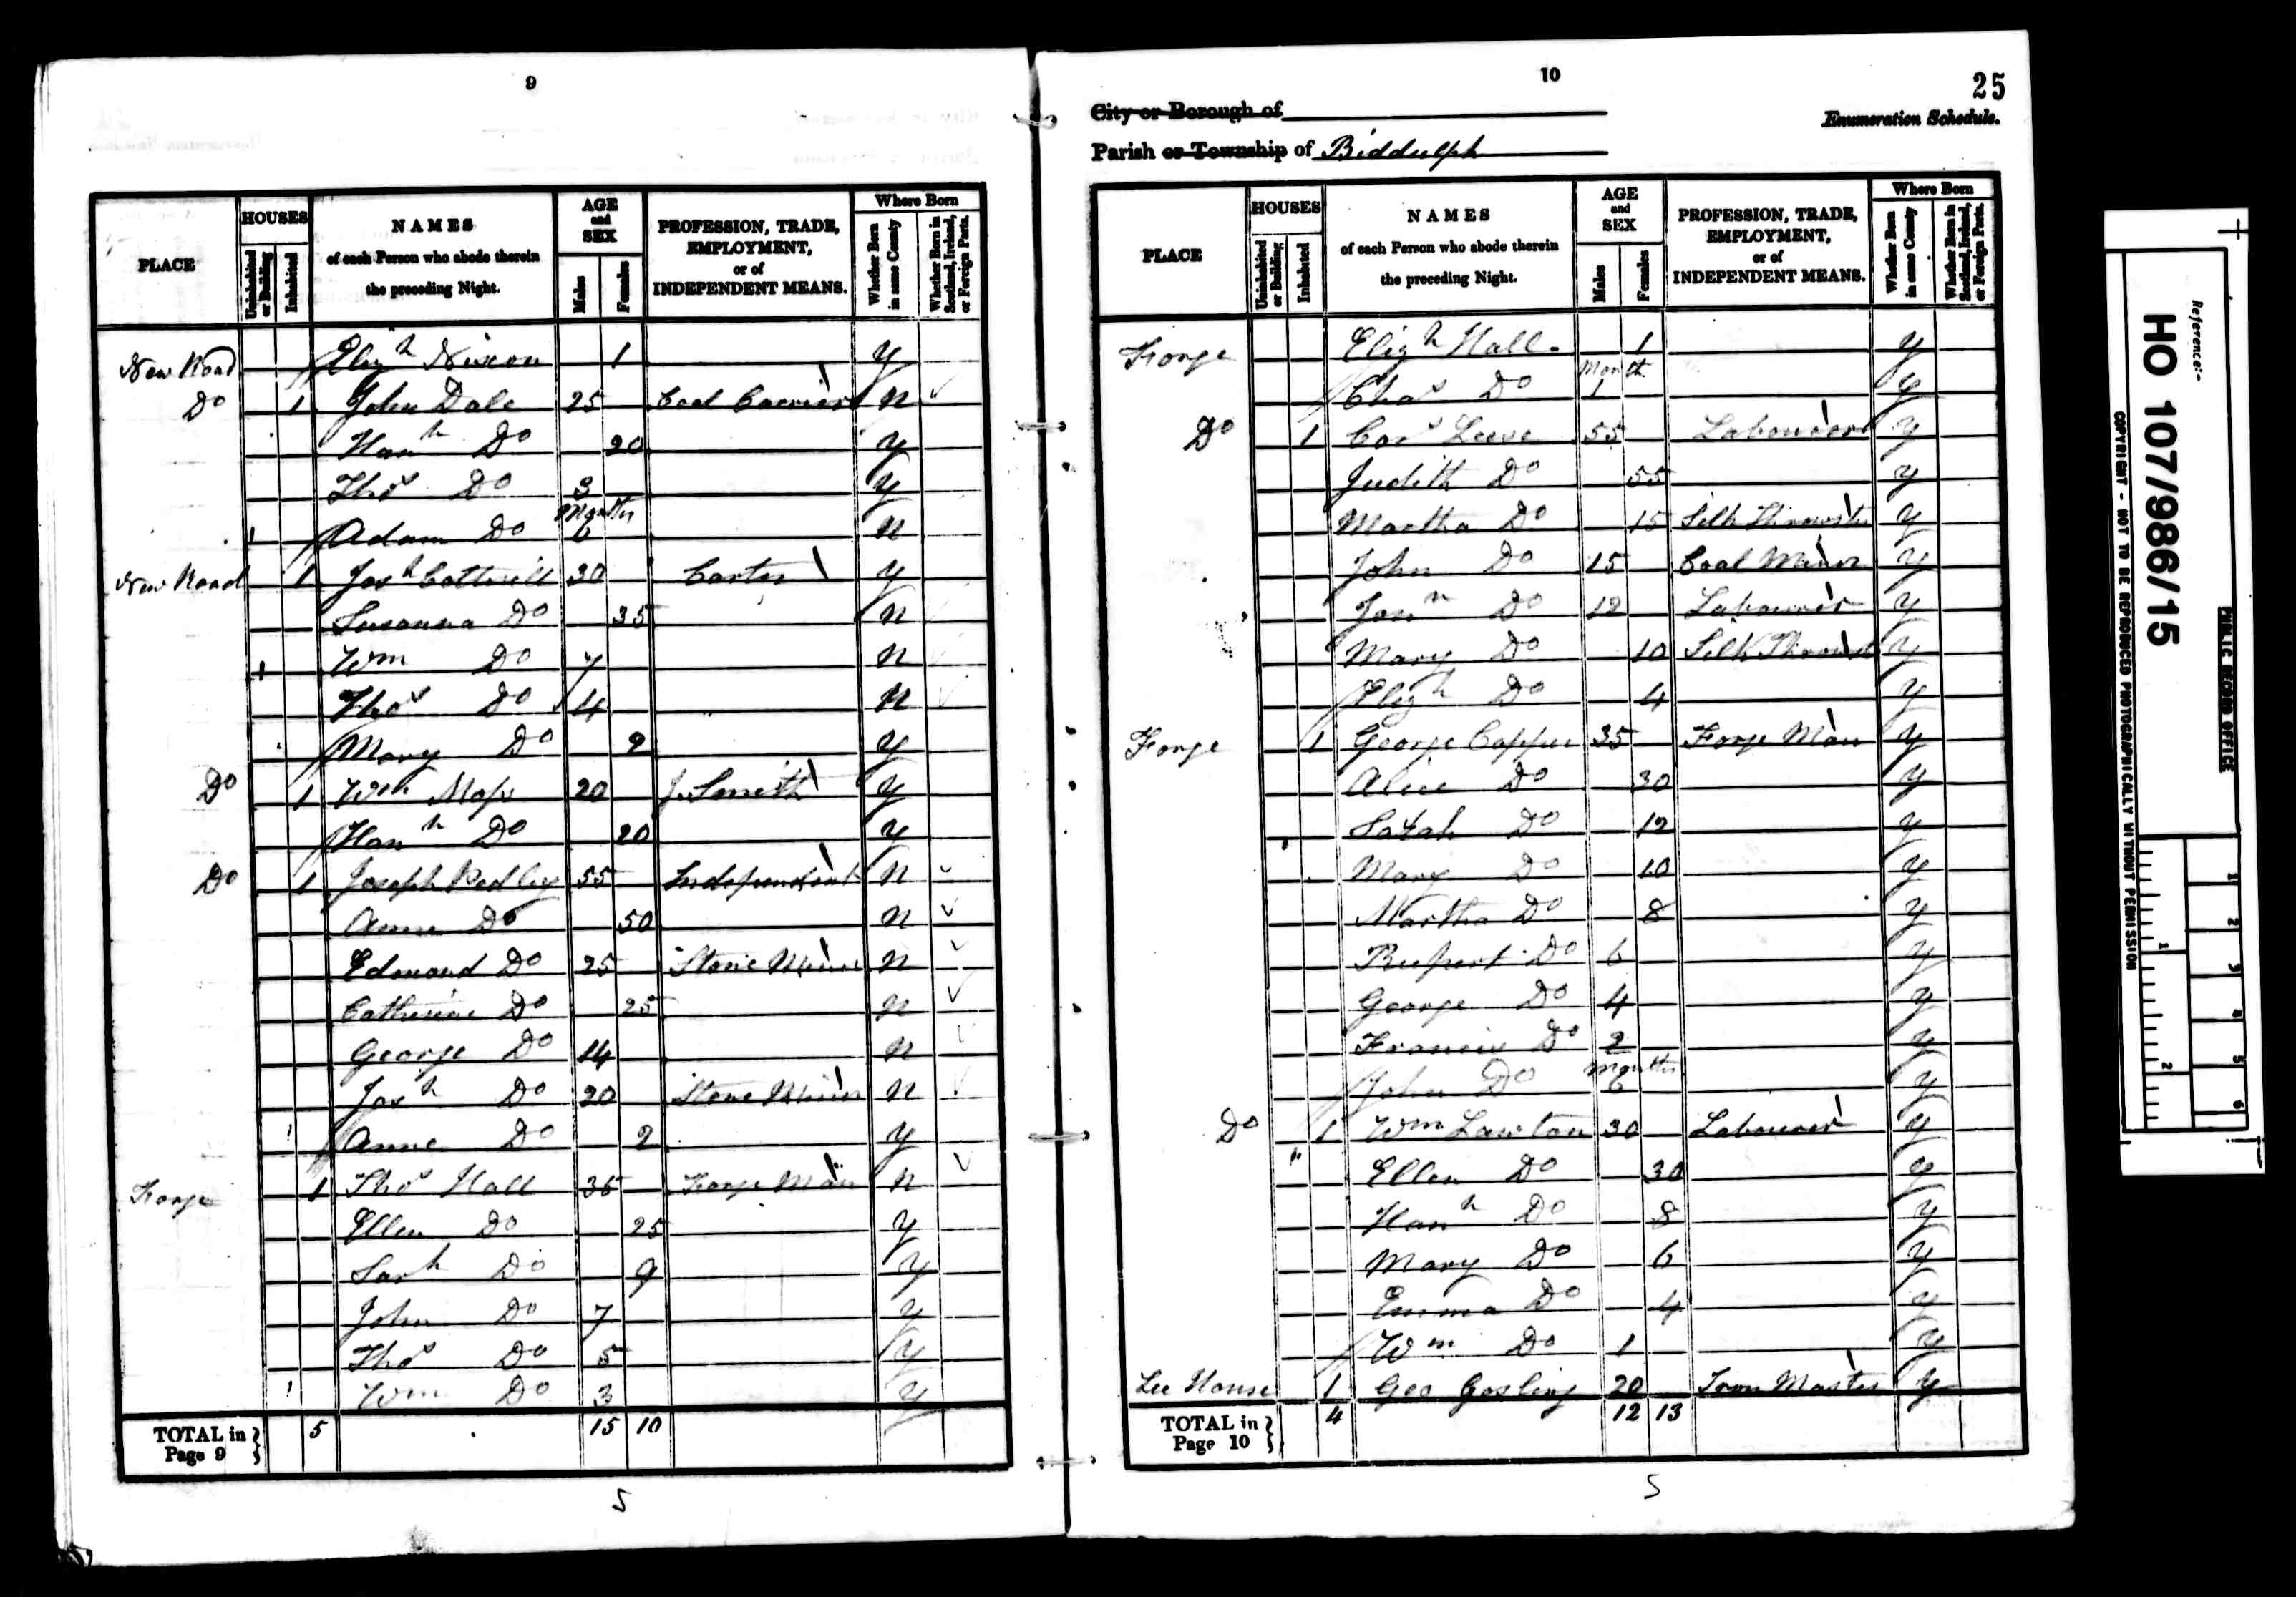 9
PLACE
HOUSES
Uninhabited or Building
Inhabited
NAMES
of each Person who abode therein
the preceding Night.
AGE
and
SEX
Males
Females
PROFESSION, TRADE,
EMPLOYMENT,
or of
INDEPENDENT MEANS.
Where Born
Whether Born in same County
Whether Born in Scotland, Ireland, or Foreign Parts.
New Road Eliz h Nixon 1 Y
Do 1 John Dale 25 Coal Carrier N
Han h Do 20 Y
Thos Do 3 Y
Adam Do Months 6 N
New Road 1 Jos h Cotterill 30 Carter Y
Susanna Do 35 N
Wm Do 7 N
Thos Do 4 N
Mary Do 2 Y
Do 1 Wm Moss 20 J. Smith Y
Han h Do 20 Y
Do 1 Joseph Pedley 55 Independent N
Anne Do 50 N
Edmund Do 25 Stone Miner N
Catherine Do 25 N
George Do 14 N
Jos h Do 20 Stone Miner N
Anne Do 2 Y
Forge 1 Thos Hall 35 Forge Man N
Ellen Do 25 Y
Sarh Do 9 Y
John Do 7 Y
Thos Do 5 Y
Wm Do 3 Y
TOTAL in Page 9 } 5 15 10
5
10
25
City or Borough of
Enumeration Schedule.
Parish or Township of Biddulph
PLACE
HOUSES
Uninhabited or Building
Inhabited
NAMES
of each Person who abode therein
the preceding Night.
AGE
and
SEX
Males
Females
PROFESSION, TRADE,
EMPLOYMENT,
or of
INDEPENDENT MEANS.
Where Born
Whether Born in same County
Whether Born in Scotland, Ireland, or Foreign Parts.
Forge Eliz h Hall 1 Y
Chas Do Month 1 Y
Do 1 Leese 55 Labourer Y
Judith Do 55 Y
Martha Do 15 Silk Throwster Y
John Do 15 Coal Miner Y
Jon n Do 12 Labourer Y
Mary Do 10 Silk Throwst Y
Eliz h Do 4 Y
Forge 1 George Copper 35 Forge Man Y
Alice Do 30 Y
Sarah Do 12 Y
Mary Do 10 Y
Martha Do 8 Y
Rupert Do 6 Y
George Do 4 Y
Francis Do 2 Y
John Do Months 6 Y
Do 1 Wm Lawton 30 Labourer Y
Ellen Do 30 Y
Han h Do 8 Y
Mary Do 6 Y
Emma Do 4 Y
Wm Do 1 Y
Lee House 1 Geo Gosling 20 Iron Master Y
TOTAL in Page 10 } 4 12 13
5
Reference:-
HO 107/986/15
PUBLIC RECORD OFFICE
COPYRIGHT - NOT TO BE REPRODUCED PHOTOGRAPHICALLY WITHOUT PERMISSION
1
2
1
2
3
4
5
6